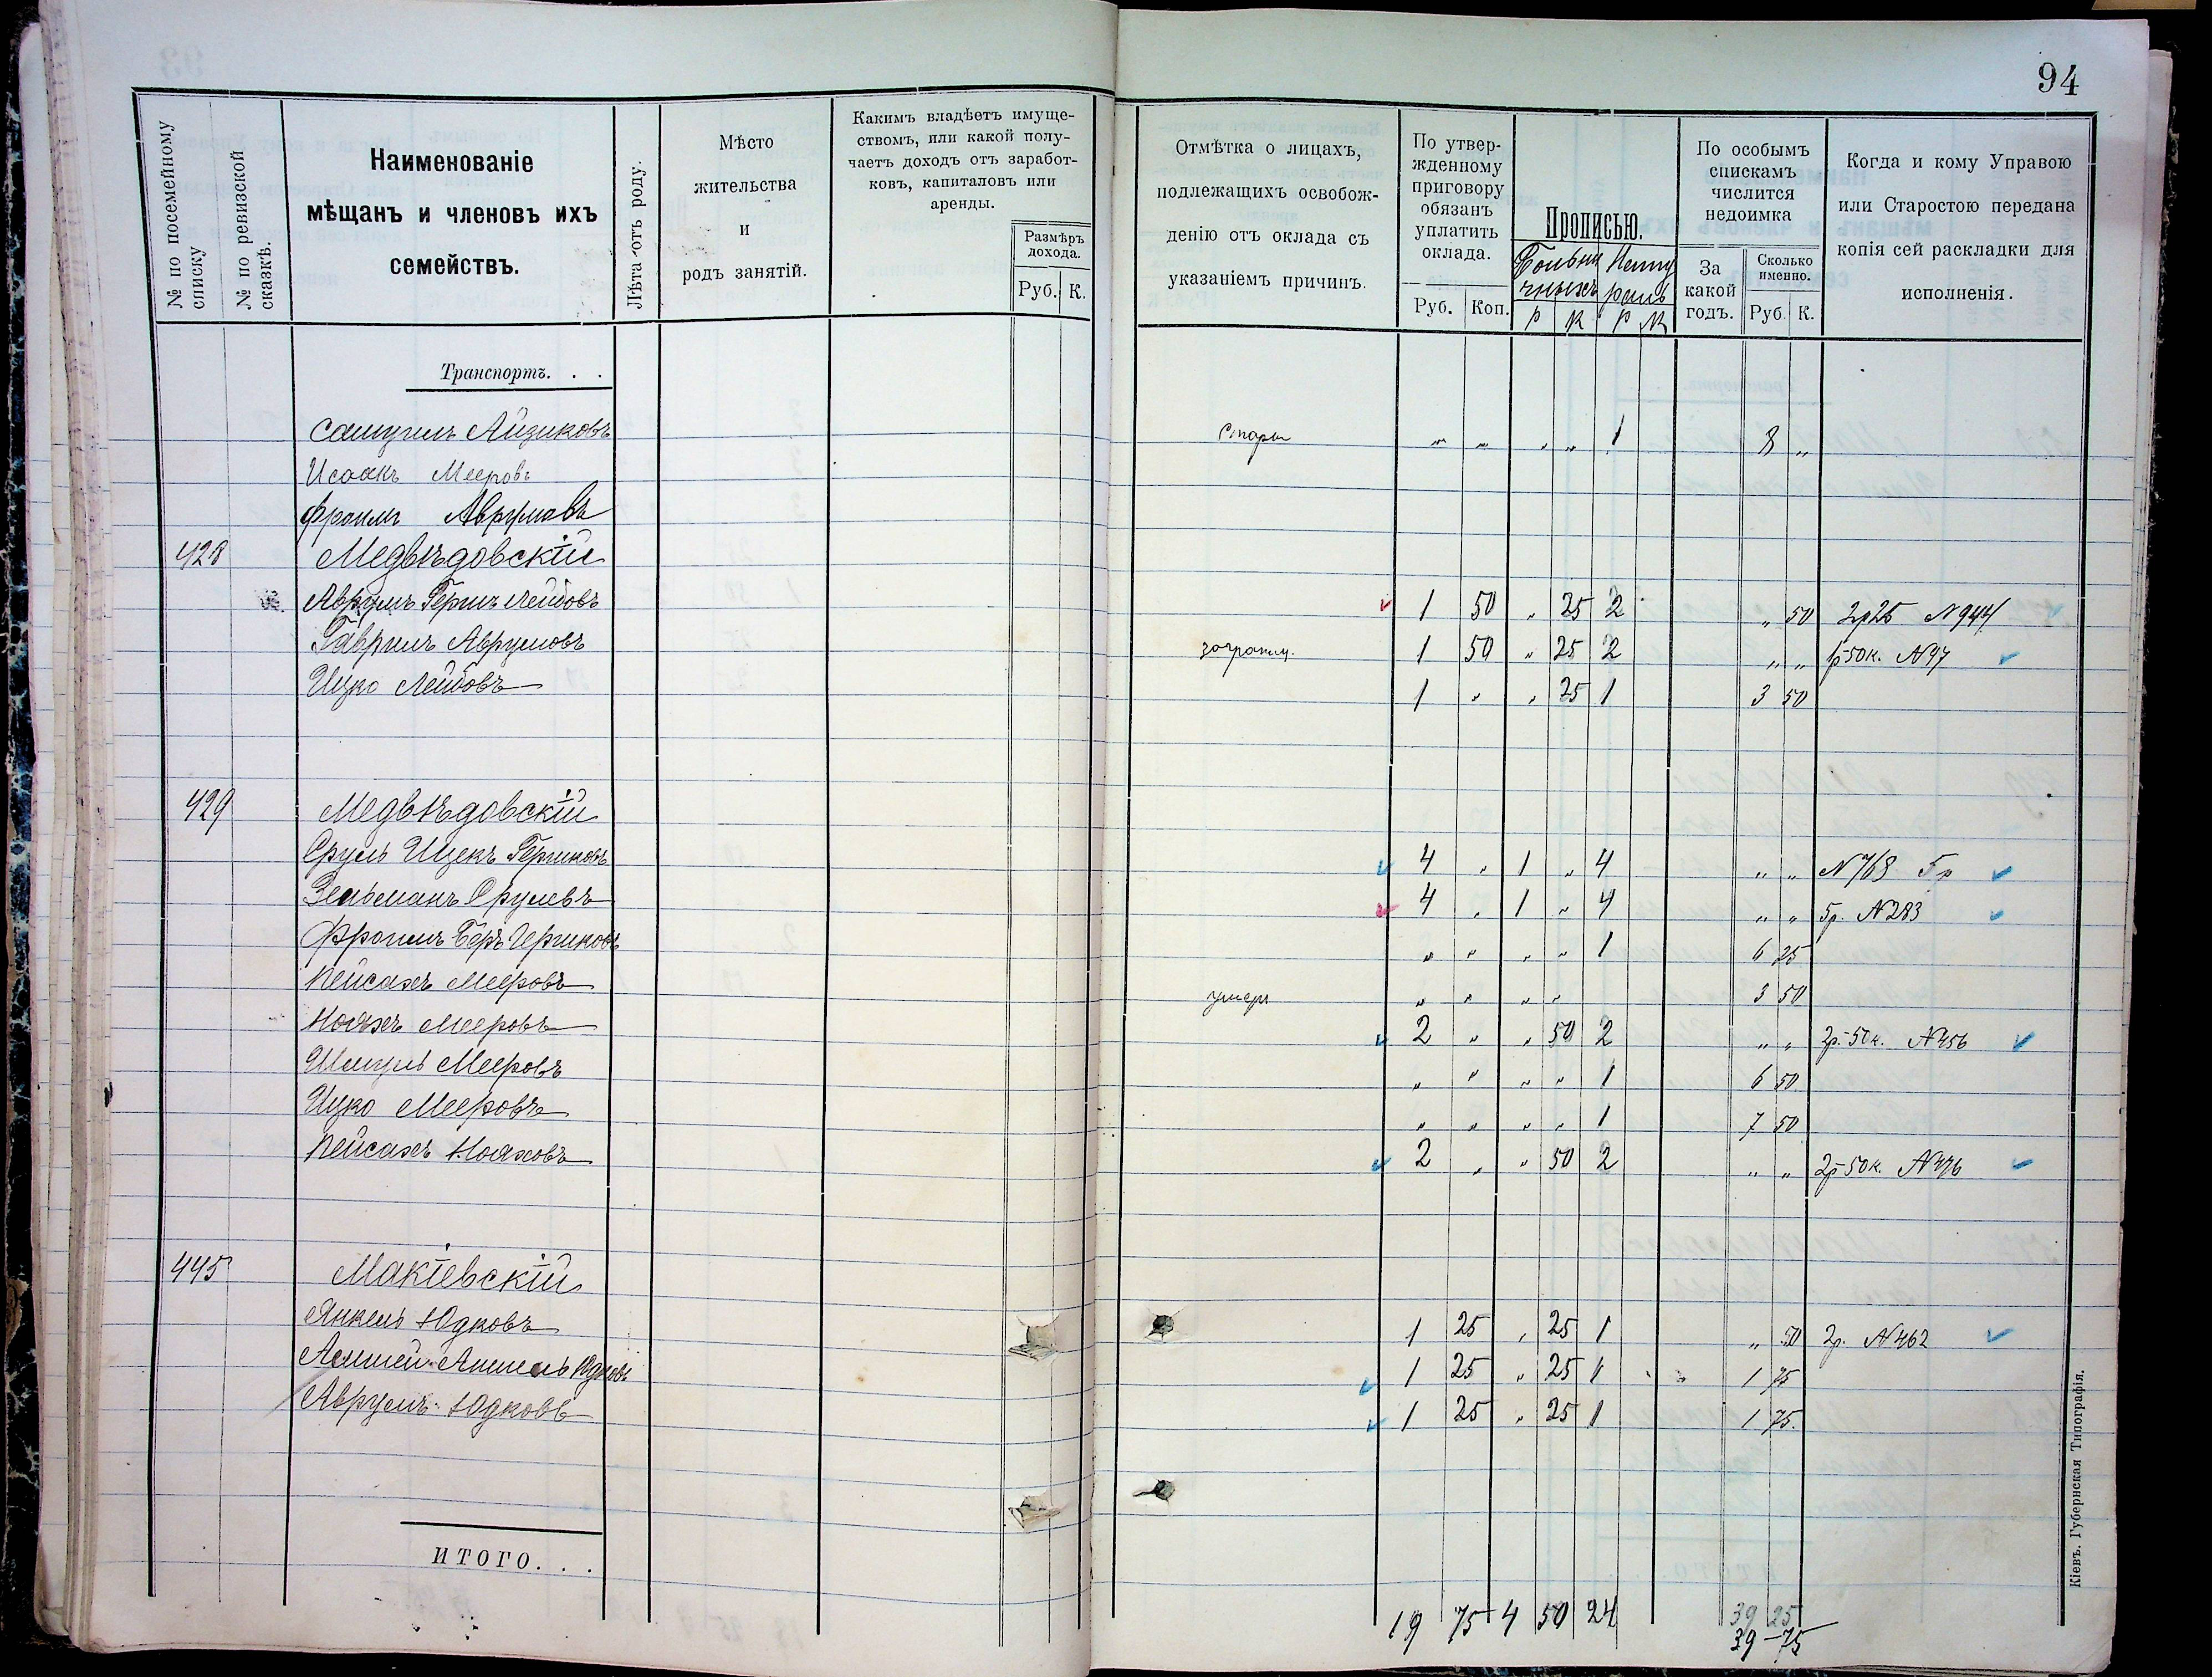 94
№ по посемейному списку
№ по ревизской сказкѣ.
Наименованіе
мѣщанъ и членовъ ихъ
семействъ.
Лѣта отъ роду.
Мѣсто
жительства
и
родъ занятій.
Какимъ владѣетъ имуще-
ствомъ, или какой полу-
чаетъ доходъ отъ заработ-
ковъ, капиталовъ или
аренды.
Размѣръ
дохода.
Руб. К.
Отмѣтка о лицахъ,
подлежащихъ освобож-
денію отъ оклада съ
указаніемъ причинъ.
По утвер-
жденному
приговору
обязанъ
уплатить
оклада.
Руб. Коп.
Прописью.
Р К Р К
По особымъ
спискамъ
числится
недоимка
За
какой
годъ.
Сколько
именно.
Руб. К.
Когда и кому Управою
или Старостою передана
копія сей раскладки для
исполненія.
Транспортъ. . .
Самуилъ Айзиковъ стары „ „ „ „ 1 8 „
Исаакъ Мееровъ
Фроимъ Аврумовъ
428 Медвѣдовскій
Аврумъ Герш Лейбовъ 1 50 „ 25 2 „ 50 2р25 N944
Гаврилъ Аврумовъ заграниц. 1 50 „ 25 2 „ „ 1р50к. N97
Ицко Лейбовъ 1 „ „ 25 1 3 50
429 Медвѣдовскій
Сруль Ицекъ Гершковъ 4 „ 1 „ 4 „ „ N768 5р
Зельманъ Срулевъ 4 „ 1 „ 4 „ „ 5р. N283
Фроимъ Беръ Гершковъ „ „ „ „ 1 6 25
Пейсахъ Мееровъ умеръ „ „ „ „ 3 50
Ноахъ Мееровъ 2 „ „ 50 2 „ „ 2р.50к. N456
Шмуль Мееровъ „ „ „ „ 1 6 50
Ицко Мееровъ „ „ „ „ 1 7 50
Пейсахъ Ноаховъ 2 „ „ 50 2 „ „ 2р50к. N476
445 Макіевскій
Янкель Юдковъ 1 25 „ 25 1 „ 50 2р. N462
Аншель Юдковъ 1 25 „ 25 1 1 75
Аврумъ Юдковъ 1 25 „ 25 1 1 75.
ИТОГО. . .
19 75 4 50 24 39 25
39-75
Кіевъ. Губернская Типографія.